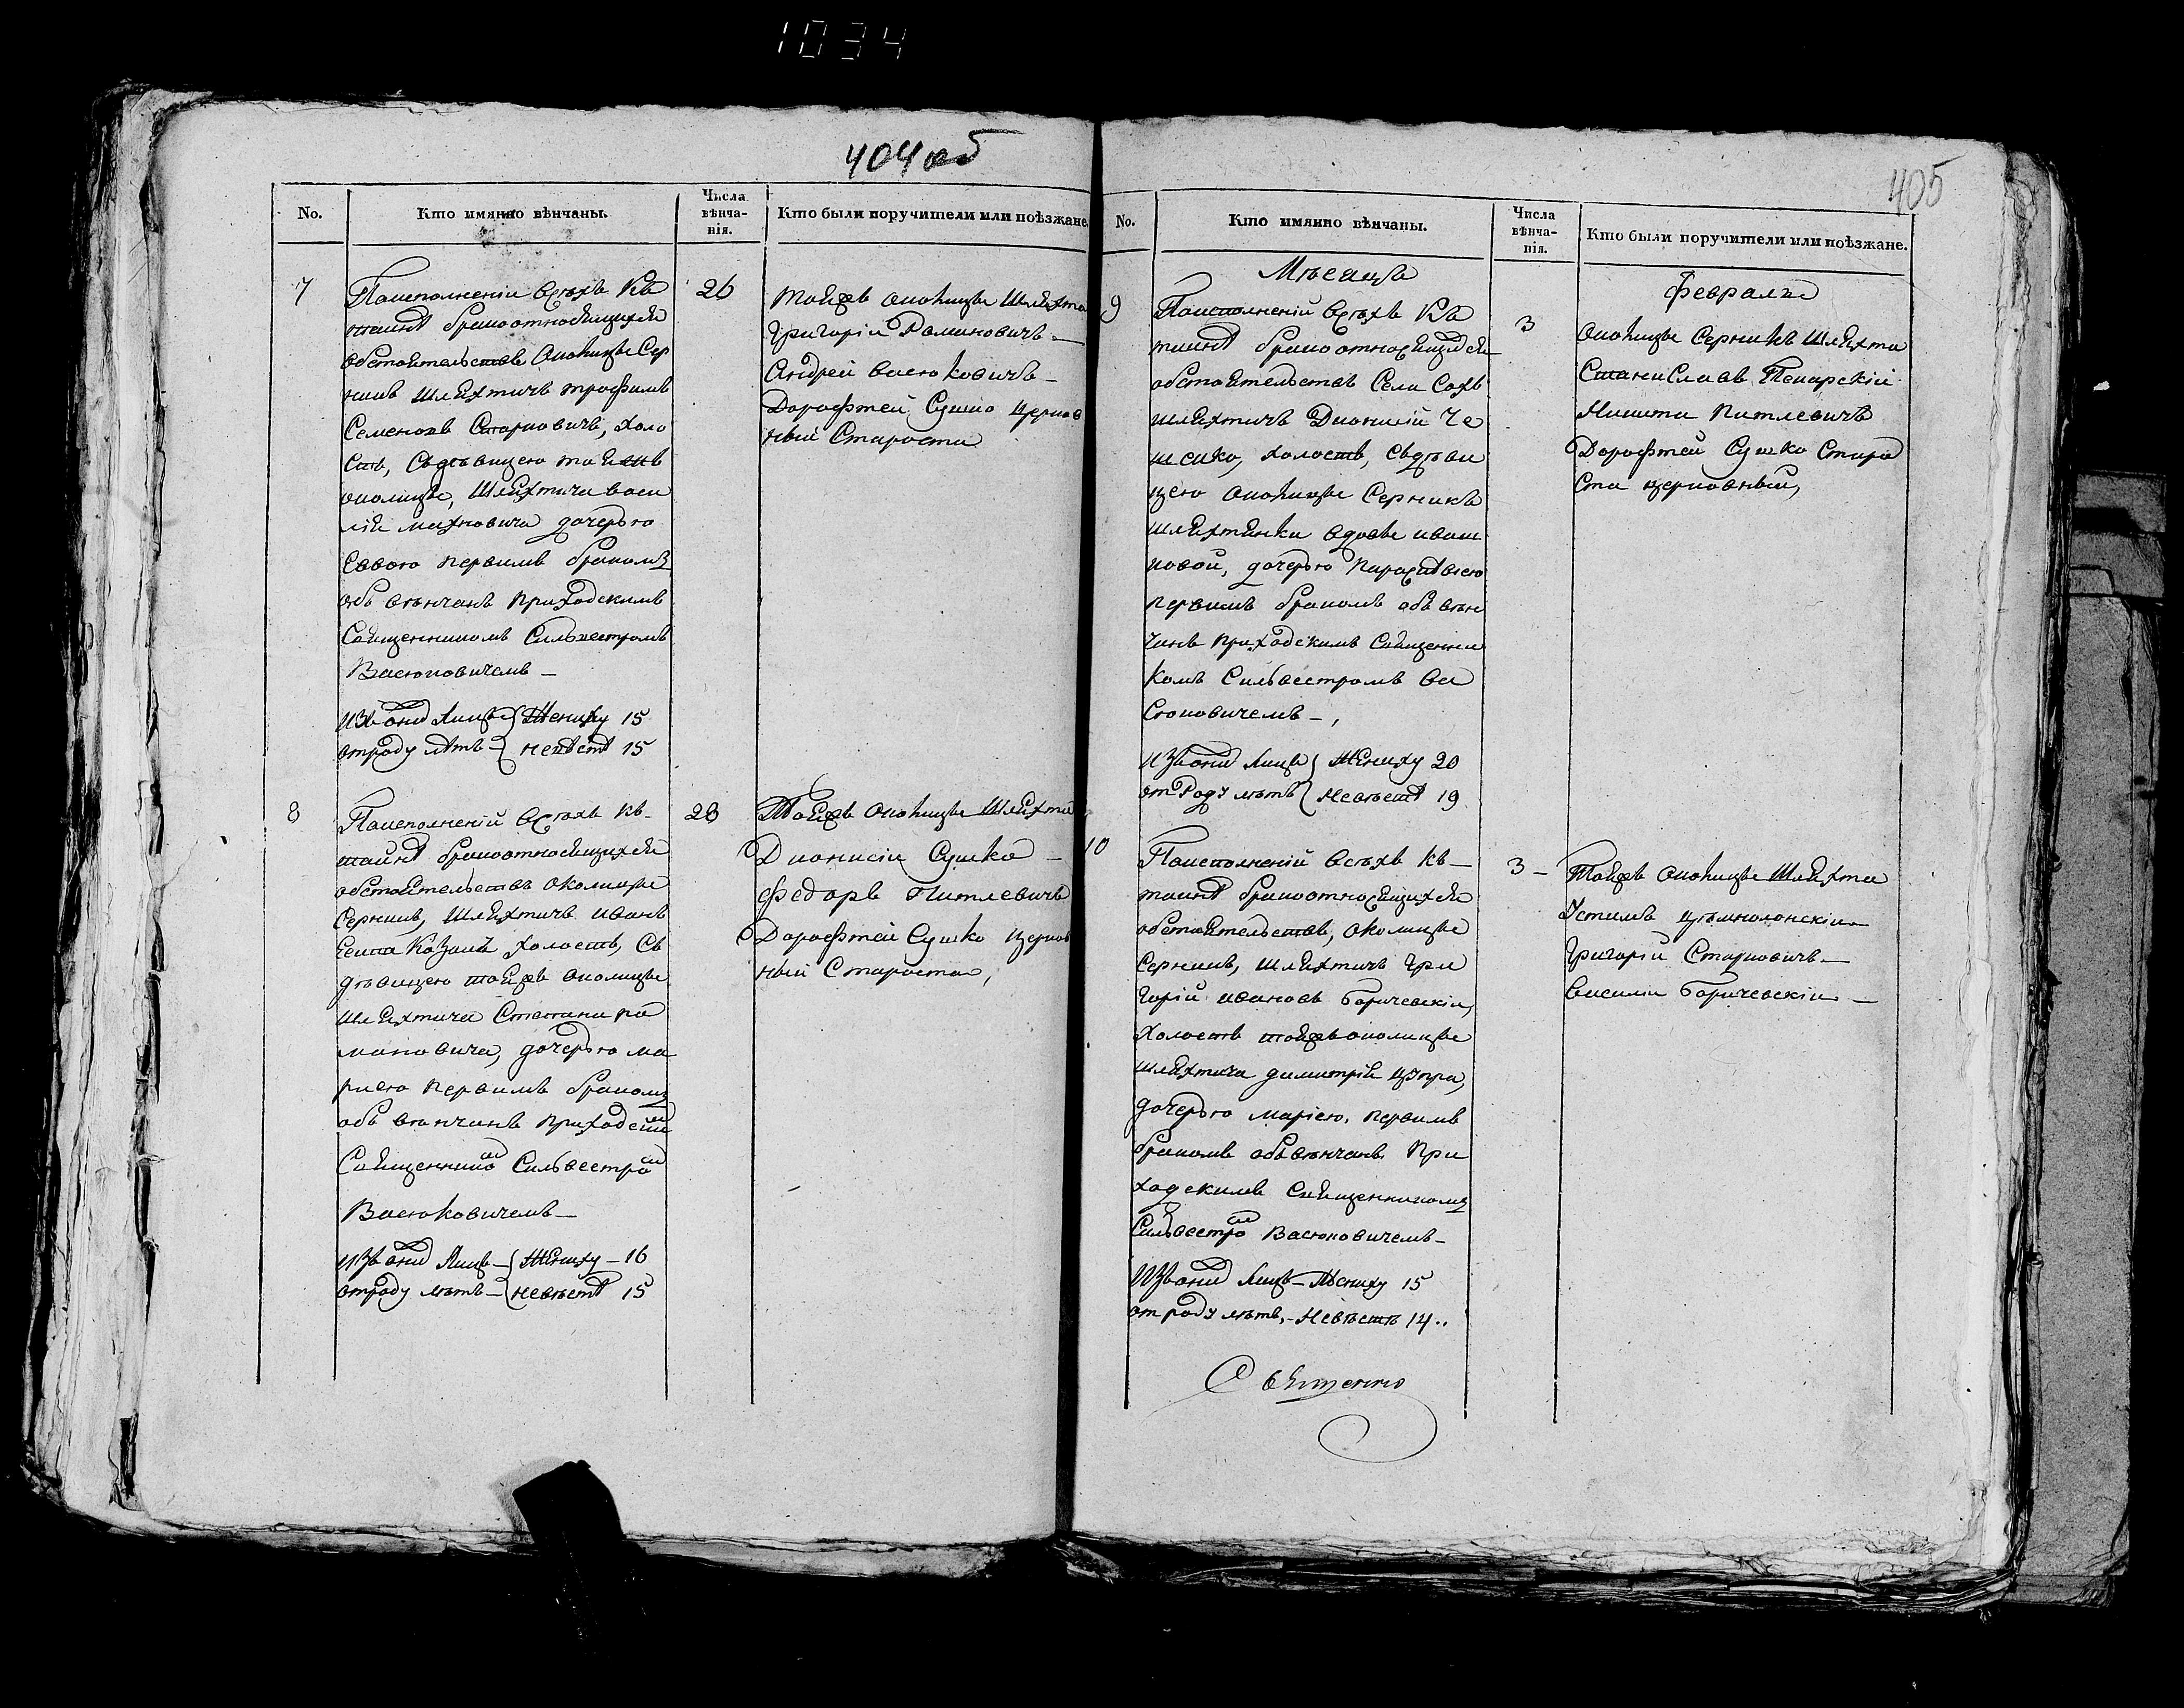 1034
404 об
No.
Кто имянно вѣнчаны.
Числа
вѣнча-
нія.
Кто были поручители или поѣзжане.
7
Поисполненіи всѣхъ къ
таинѣ бракоотносящихся
обстоятельствъ околицы Сер
никъ шляхтичъ трофимъ
Семеновъ Старковичъ, холо
стъ, Съдѣвицею тояжъ
околицы, Шляхтича васи
лія махновича дочерью
первимъ бракомъ
объ вѣнчанъ приходскимъ
Священникомъ Сильвестромъ
Васюковичемъ –
изъ лицъ Жениху 15
отроду лѣтъ – невѣстѣ 15
26
тояжъ околицы шляхта
Григорій Романовичъ –
Андрей васюковичъ –
Дорофтей Сушко церков
ный Староста
8
Поисполненіи всѣхъ къ –
таинѣ бракоотносящихся
обстоятельствъ околицы
Серникъ, Шляхтичъ иванъ
холостъ, Съ
дѣвицею тояжъ околицы
шляхтича Степана Ро
мановича, дочерью ма
риею первимъ бракомъ
объ вѣнчанъ приходским
Священником Сильвестром
Васюковичемъ –
изъ лицъ – Жениху – 16
отроду лѣтъ – невѣстѣ 15
28
Тояжъ околицы шляхта
Дионисій Сушко –
федоръ Питлевичъ
Дорофтей Сушко церков
ный Староста,
405
No.
Кто имянно вѣнчаны.
Числа
вѣнча-
нія.
Кто были поручители или поѣзжане.
Мѣсяца
февраля
9
Поисполненій всѣхъ къ
таинѣ бракоотносящихся
обстоятельствъ Села
шляхтичъ Дионисій
холостъ, съдѣви
цею околицы Серникъ
шляхтянки вдовы иваш
ковой, дочерью
первимъ бракомъ объ вѣн
чанъ приходскимъ Священни
комъ Сильвестромъ Ва
сюковичемъ –,
изъ лицъ Жениху 20
от Роду лѣтъ невѣстѣ 19
3
околицы Серникъ шляхта
Станиславъ
Никита Питлевичъ
Дорофтей Сушко Старо
ста церковный,
10
Поисполненій всѣхъ къ –
таинѣ бракоотносящихся
обстоятельствъ, околицы
Серникъ, шляхтичъ Гри
горій ивановъ Боричевскій,
холостъ тояжъ околицы
шляхтича димитрія
дочерью маріею, первимъ
бракомъ объвѣнчанъ при
ходскимъ Священникомъ
Сильвестром Васюковичемъ –
изъ лицъ – Жениху 15
от роду лѣтъ, – Невѣстѣ 14..
3 –
Тояжъ околицы Шляхта
Устимъ
Григорій Старковичъ –
василій Боричевскій –
Священно